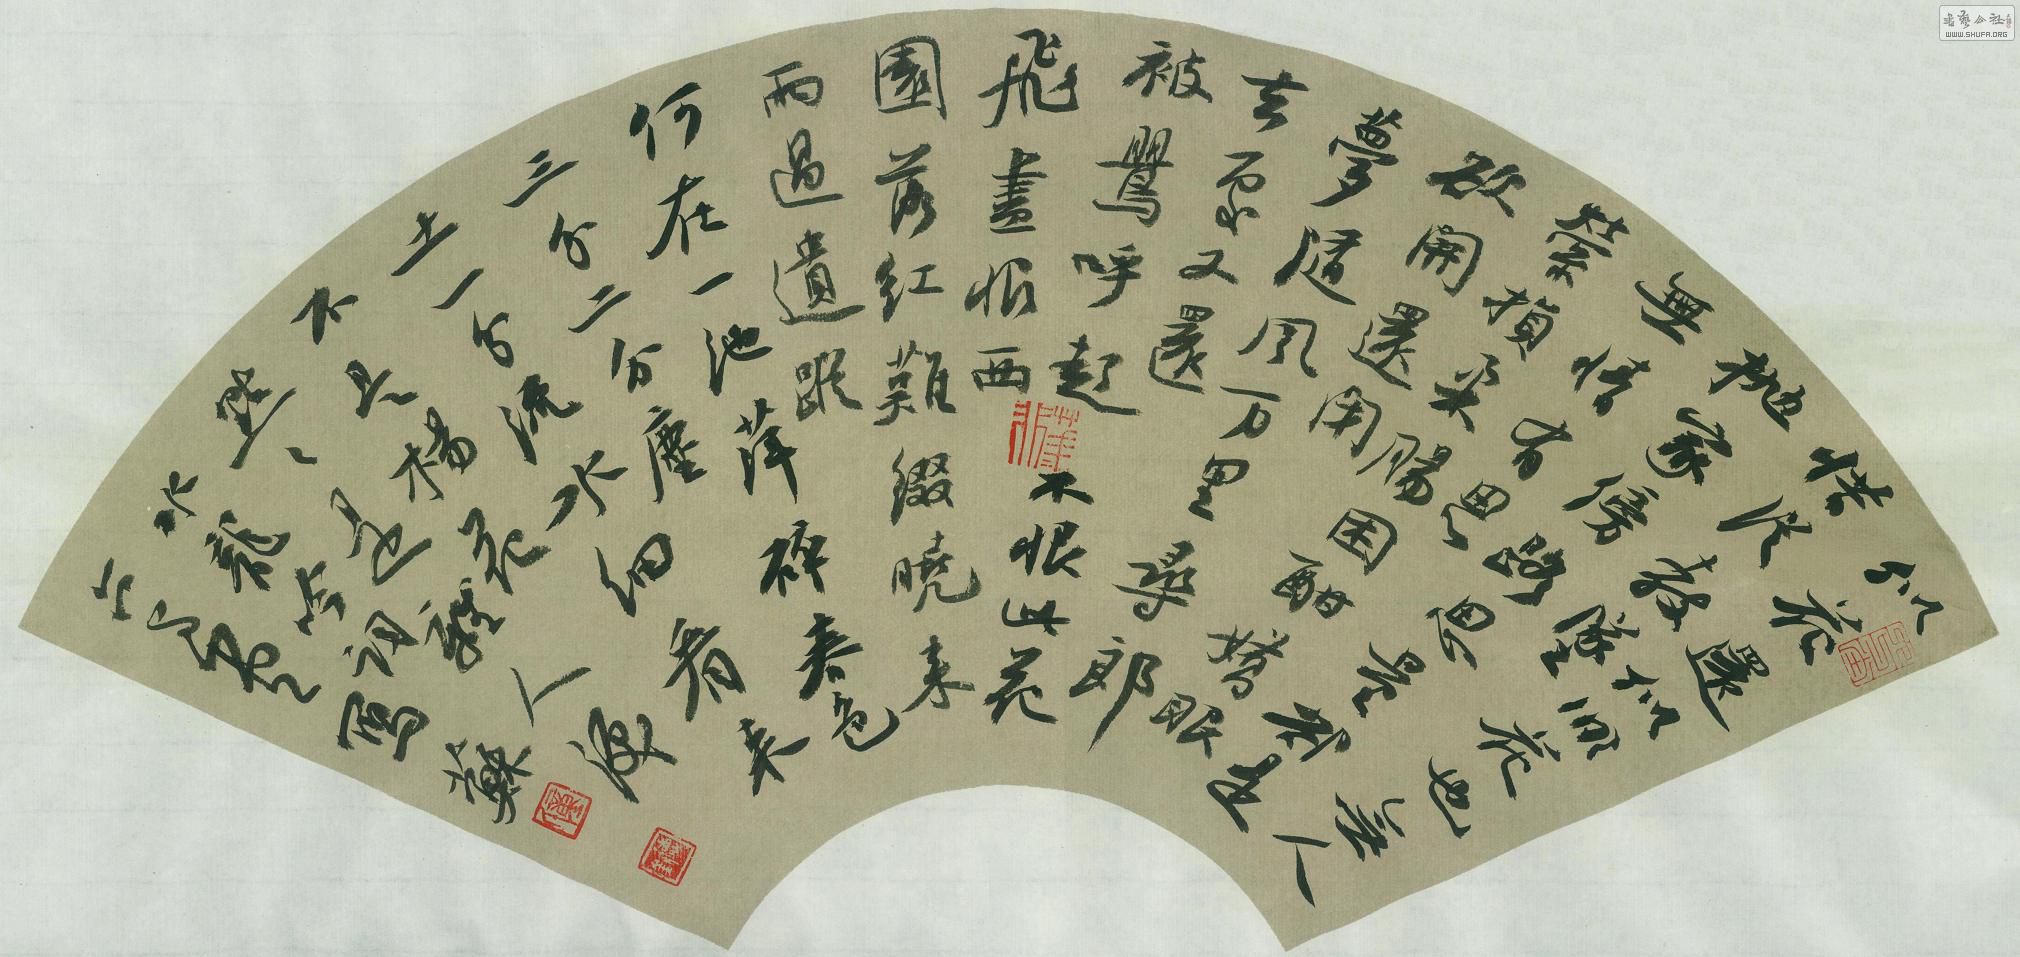 似花還似非花也無人
惜從教墜
抛家傍路思量却是
無情有思
縈損柔腸困酣嬌眼
欲開還閉
夢隨風万里尋郎
去處又還
被鶯呼起不恨此花
飛盡恨西
園落紅難綴曉來
雨過遺蹤
何在一池萍碎春色
三分二分塵
土一分流水細看来
不是楊花
點〻是離人淚
水龍吟詞
WWW.SHUFA.ORG